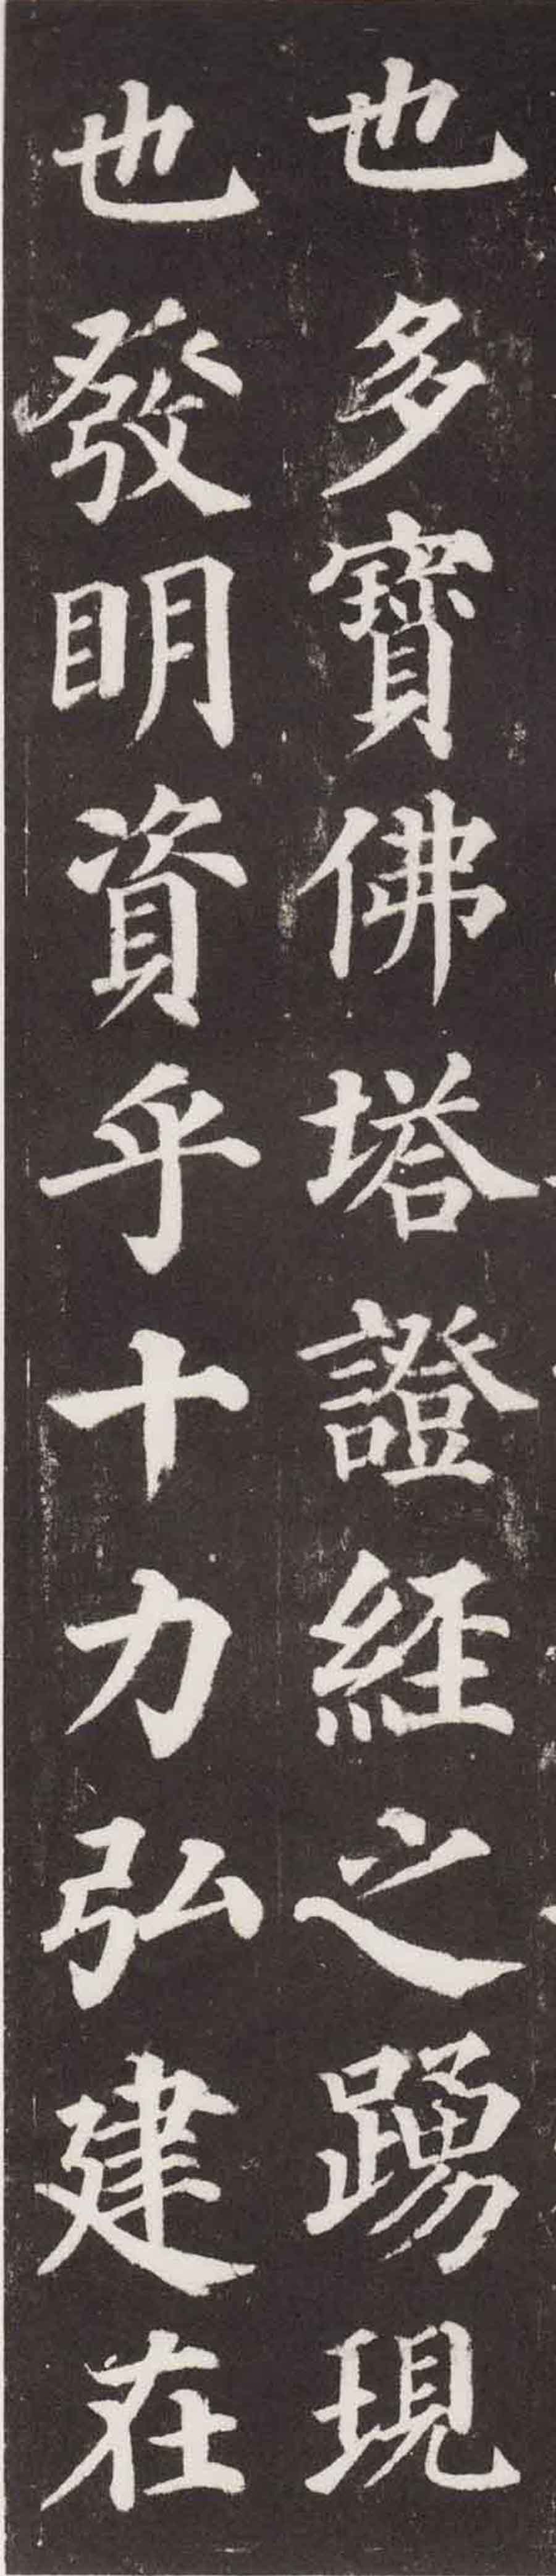 也多寶佛塔證經之踴現
也發明資乎十力弘建在